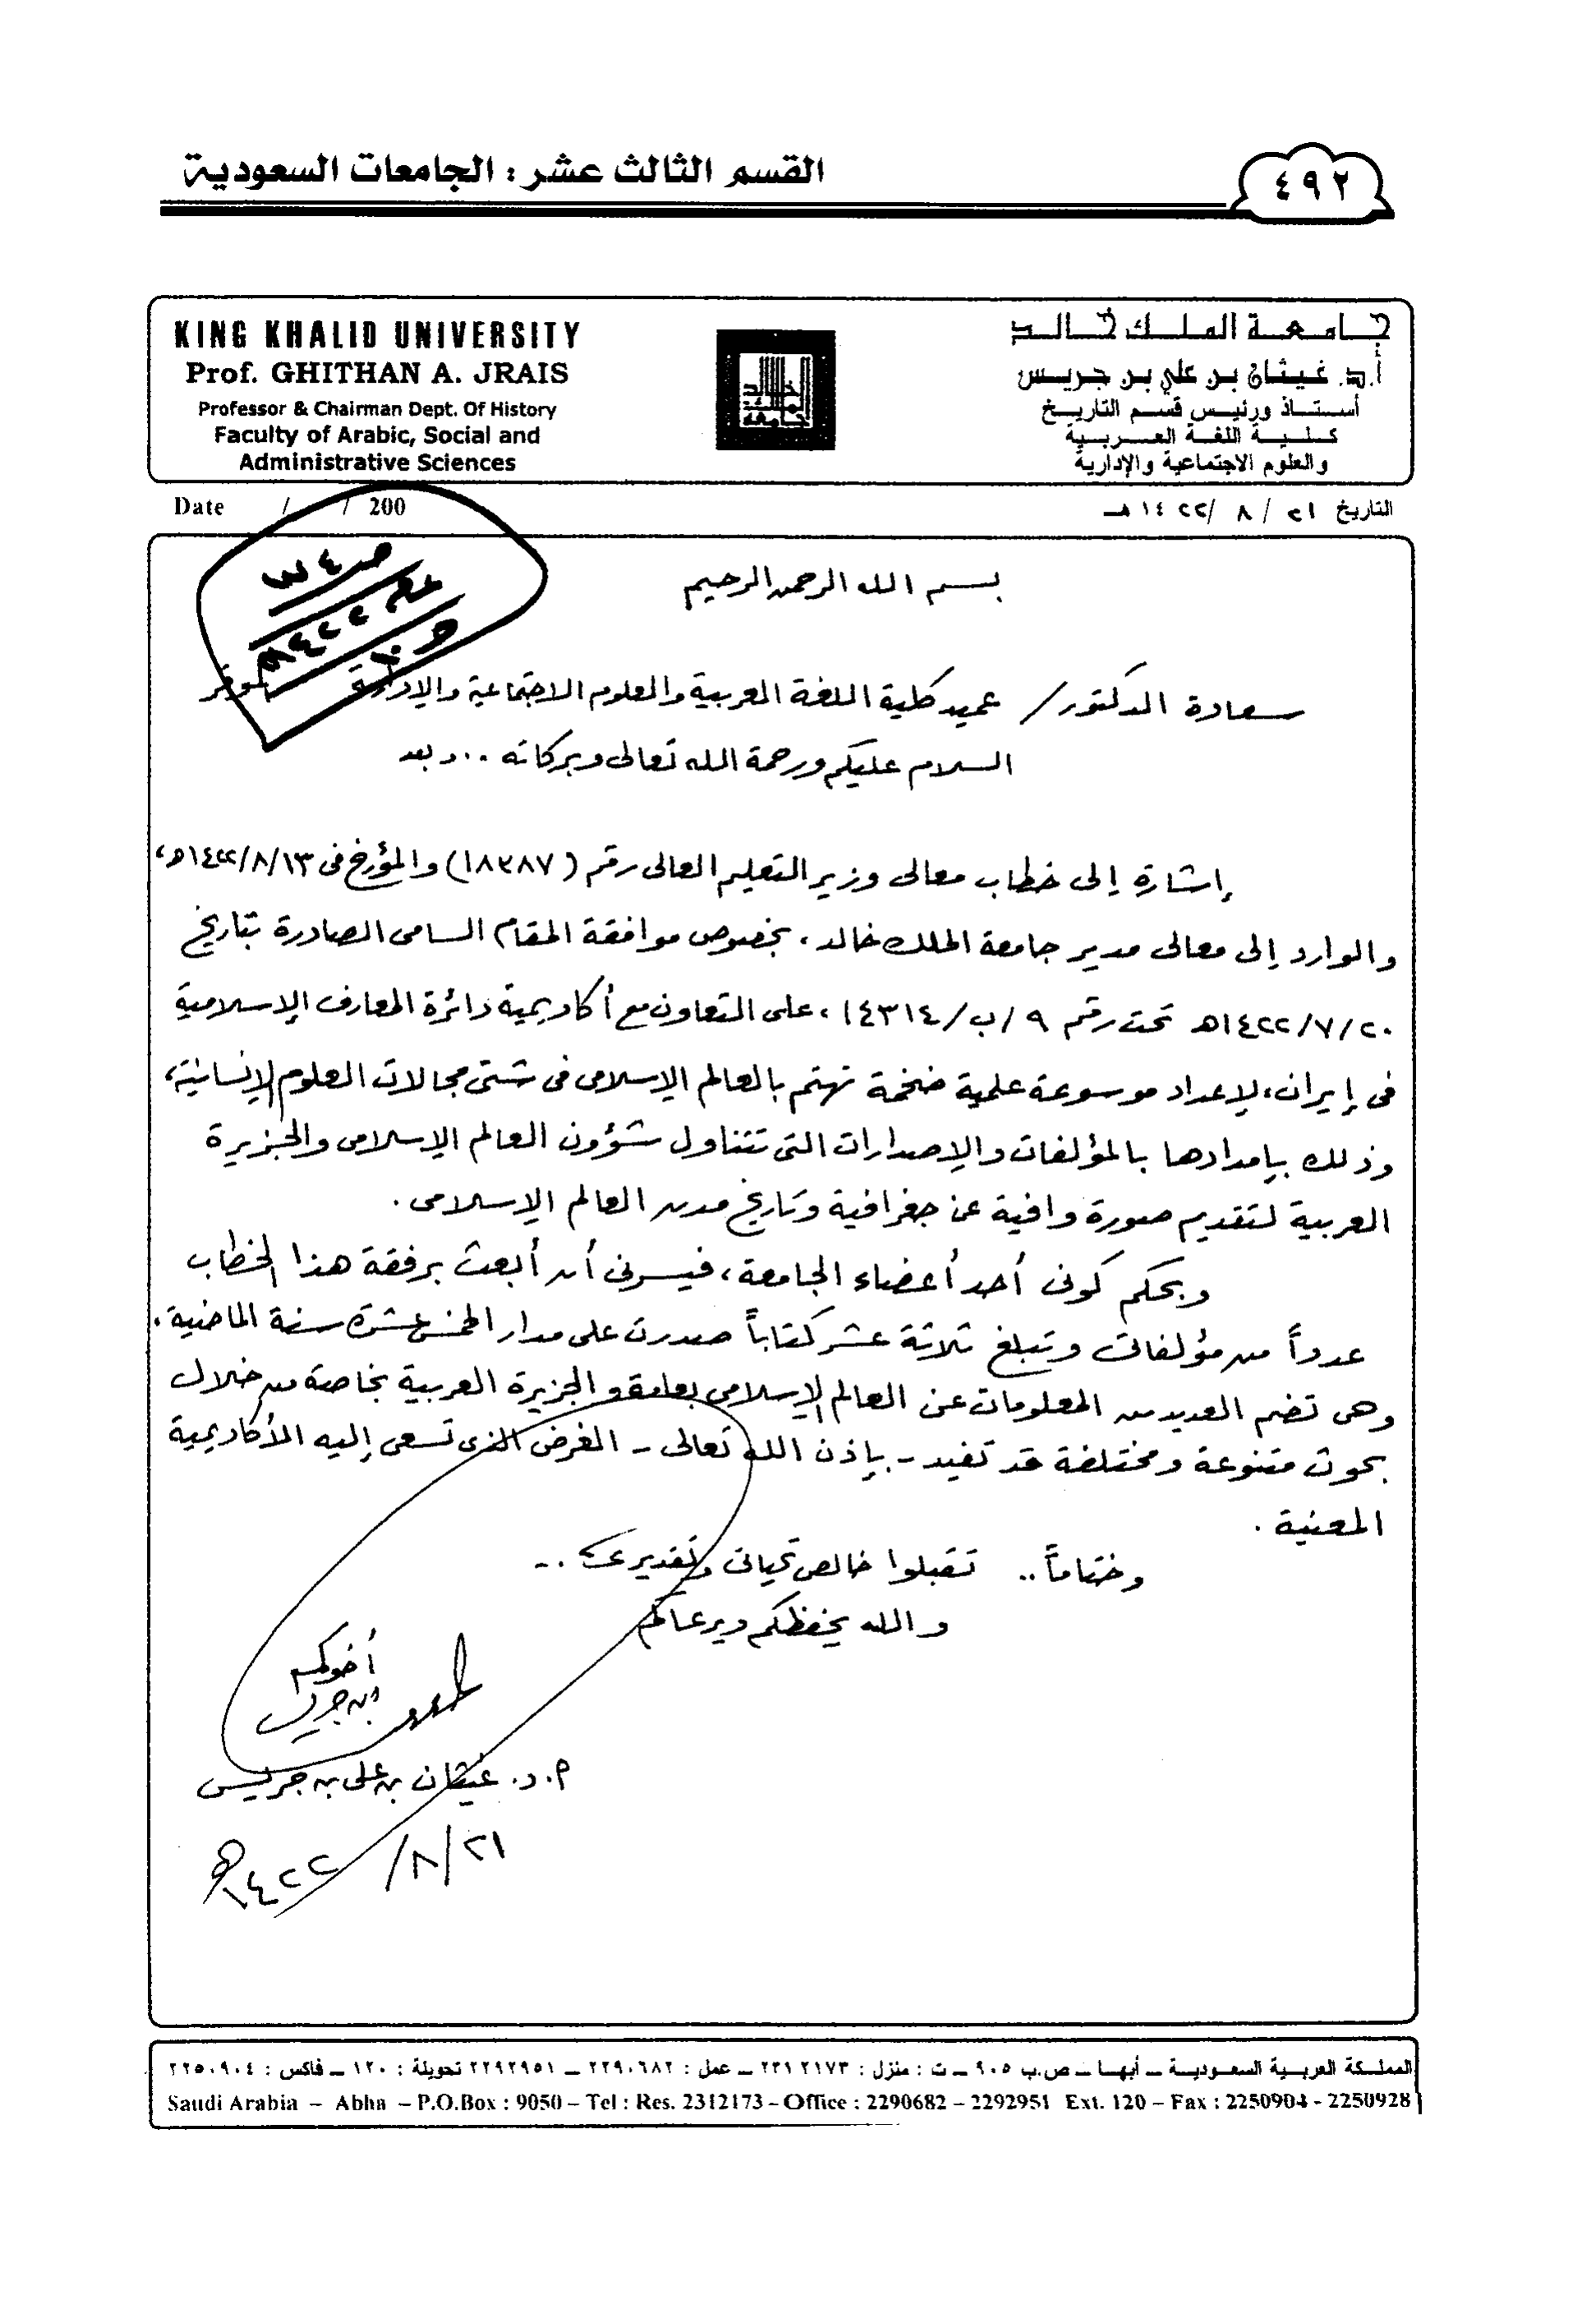 القسم الثالث عشر : الجامعات السعودية
٤٩٢
KING KHALID UNIVERSITY
Prof. GHITHAN A. JRAIS
Professor & Chairman Dept. Of History
Faculty of Arabic, Social and
Administrative Sciences
جامعة الملك خالد
أ.د. غيثان بن علي بن جريس
أستاذ ورئيس قسم التاريخ
كلية اللغة العربية
والعلوم الاجتماعية والإدارية
Date / / 200
التاريخ ٢١ / ٨ / ١٤٢٢هـ
بسم الله الرحمن الرحيم
سعادة الدكتور / عميد كلية اللغة العربية والعلوم الاجتماعية والإدارية الموقر
السلام عليكم ورحمة الله تعالى وبركاته .. وبعد
إشارة إلى خطاب معالي وزير التعليم العالي رقم (١٨٣٨٧) والمؤرخ في ١٤٢٢/٨/١٣هـ،
والوارد إلى معالي مدير جامعة الملك خالد، بخصوص موافقة المقام السامي الصادرة بتاريخ
١٤٢٢/٧/٢٠هـ تحت رقم ٩/ب/١٤٣١٤، على التعاون مع أكاديمية دائرة المعارف الإسلامية
في إيران، لإعداد موسوعة علمية ضخمة تهتم بالعالم الإسلامي في شتى مجالات العلوم الإنسانية،
وذلك بإمدادها بالمؤلفات والإصدارات التي تتناول شؤون العالم الإسلامي والجزيرة
العربية لتقديم صورة وافية عن جغرافية وتاريخ مدن العالم الإسلامي.
وبحكم كوني أحد أعضاء الجامعة، فيسرني أن أبعث برفقة هذا الخطاب
عدداً من مؤلفاتي وتبلغ ثلاثة عشر كتاباً صدرت على مدار الخمس عشرة سنة الماضية.
وهي تضم العديد من المعلومات عن العالم الإسلامي بعامة والجزيرة العربية بخاصة من خلال
بحوث متنوعة ومختلفة قد تفيد - بإذن الله تعالى - الغرض الذي تسعى إليه الأكاديمية
المعنية.
وختاماً .. تقبلوا خالص تحياتي وتقديري ..
والله يحفظكم ويرعاكم
أخوكم
ابن جريس
أ.د. غيثان بن علي بن جريس
٢١/٨/١٤٢٢هـ
المملكة العربية السعودية – أبها – ص.ب ٩٠٥ – ت : منزل : ٢٣١٢١٧٣ – عمل : ٢٢٩٠٦٨٢ – ٢٢٩٢٩٥١ تحويلة : ١٢٠ – فاكس : ٢٢٥٠٩٠٤
Saudi Arabia – Abha – P.O.Box : 9050 – Tel : Res. 2312173 – Office : 2290682 – 2292951 Ext. 120 – Fax : 2250904 - 2250928